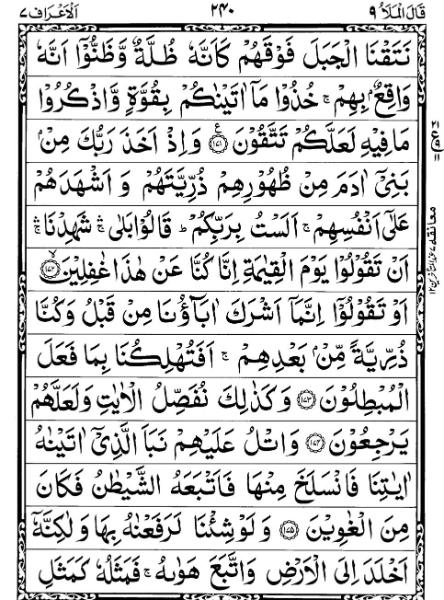 قَالَ الْمَلَاُ ٩ ٢٤٠ اَلْاَعْرَاف ٧
نَتَقْنَا الْجَبَلَ فَوْقَهُمْ كَاَنَّهٗ ظُلَّةٌ وَّظَنُّوْۤا اَنَّهٗ
وَاقِعٌۢ بِهِمْ ۚ خُذُوْا مَاۤ اٰتَيْنٰكُمْ بِقُوَّةٍ وَّاذْكُرُوْا
مَا فِيْهِ لَعَلَّكُمْ تَتَّقُوْنَ ﴿١٧١﴾ ع وَاِذْ اَخَذَ رَبُّكَ مِنْۢ
بَنِيْۤ اٰدَمَ مِنْ ظُهُوْرِهِمْ ذُرِّيَّتَهُمْ وَاَشْهَدَهُمْ
عَلٰۤى اَنْفُسِهِمْ ۚ اَلَسْتُ بِرَبِّكُمْ ؕ قَالُوْا بَلٰى ۛۚ شَهِدْنَا ۛۚ
اَنْ تَقُوْلُوْا يَوْمَ الْقِيٰمَةِ اِنَّا كُنَّا عَنْ هٰذَا غٰفِلِيْنَ ﴿١٧٢﴾ ۙ
اَوْ تَقُوْلُوْۤا اِنَّمَاۤ اَشْرَكَ اٰبَآؤُنَا مِنْ قَبْلُ وَكُنَّا
ذُرِّيَّةً مِّنْۢ بَعْدِهِمْ ۚ اَفَتُهْلِكُنَا بِمَا فَعَلَ
الْمُبْطِلُوْنَ ﴿١٧٣﴾ وَكَذٰلِكَ نُفَصِّلُ الْاٰيٰتِ وَلَعَلَّهُمْ
يَرْجِعُوْنَ ﴿١٧٤﴾ وَاتْلُ عَلَيْهِمْ نَبَاَ الَّذِيْۤ اٰتَيْنٰهُ
اٰيٰتِنَا فَانْسَلَخَ مِنْهَا فَاَتْبَعَهُ الشَّيْطٰنُ فَكَانَ
مِنَ الْغٰوِيْنَ ﴿١٧٥﴾ وَلَوْ شِئْنَا لَرَفَعْنٰهُ بِهَا وَلٰكِنَّهٗۤ
اَخْلَدَ اِلَى الْاَرْضِ وَاتَّبَعَ هَوٰىهُ ۚ فَمَثَلُهٗ كَمَثَلِ
ع
١١
معانقه ٧